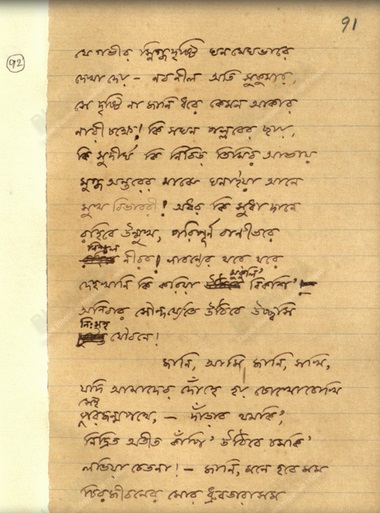 91
92
যে গভীর স্নিগ্ধদৃষ্টি ঘনমেঘভারে
দেখা দেয় – নবনীল অতি সুকুমার,
সে দৃষ্টি না জানি ধরে কেমন আকার
নারীচক্ষে! কি সঘন পল্লবের ছায়,
কি সুদীর্ঘ কি নিবিড় তিমির আভায়
মুগ্ধ অন্তরের মাঝে ঘনাইয়া আনে
সুখ বিভাবরী! অধর কি সুধাদানে
রহিবে উন্মুখ, পরিপূর্ণ বাণীভরে
নিশ্চল নীরব! লাবণ্যের থরে থরে
দেহখানি কি করিয়া মুকুলি' বিকশি'
অনিবার সৌন্দর্য্যেতে উঠিবে উচ্ছ্বসি
নিঃসহ যৌবনে!
জানি, আমি জানি, সখি,
যদি আমাদের দোঁহে হয় চোখোচোখি
সেই পরজন্মপথে, – দাঁড়াব থমকি',
নিদ্রিত অতীত কাঁপি' উঠিবে চমকি'
লভিয়া চেতনা! – জানি, মনে হবে মম
চিরজীবনের মোর ধ্রুবতারাসম